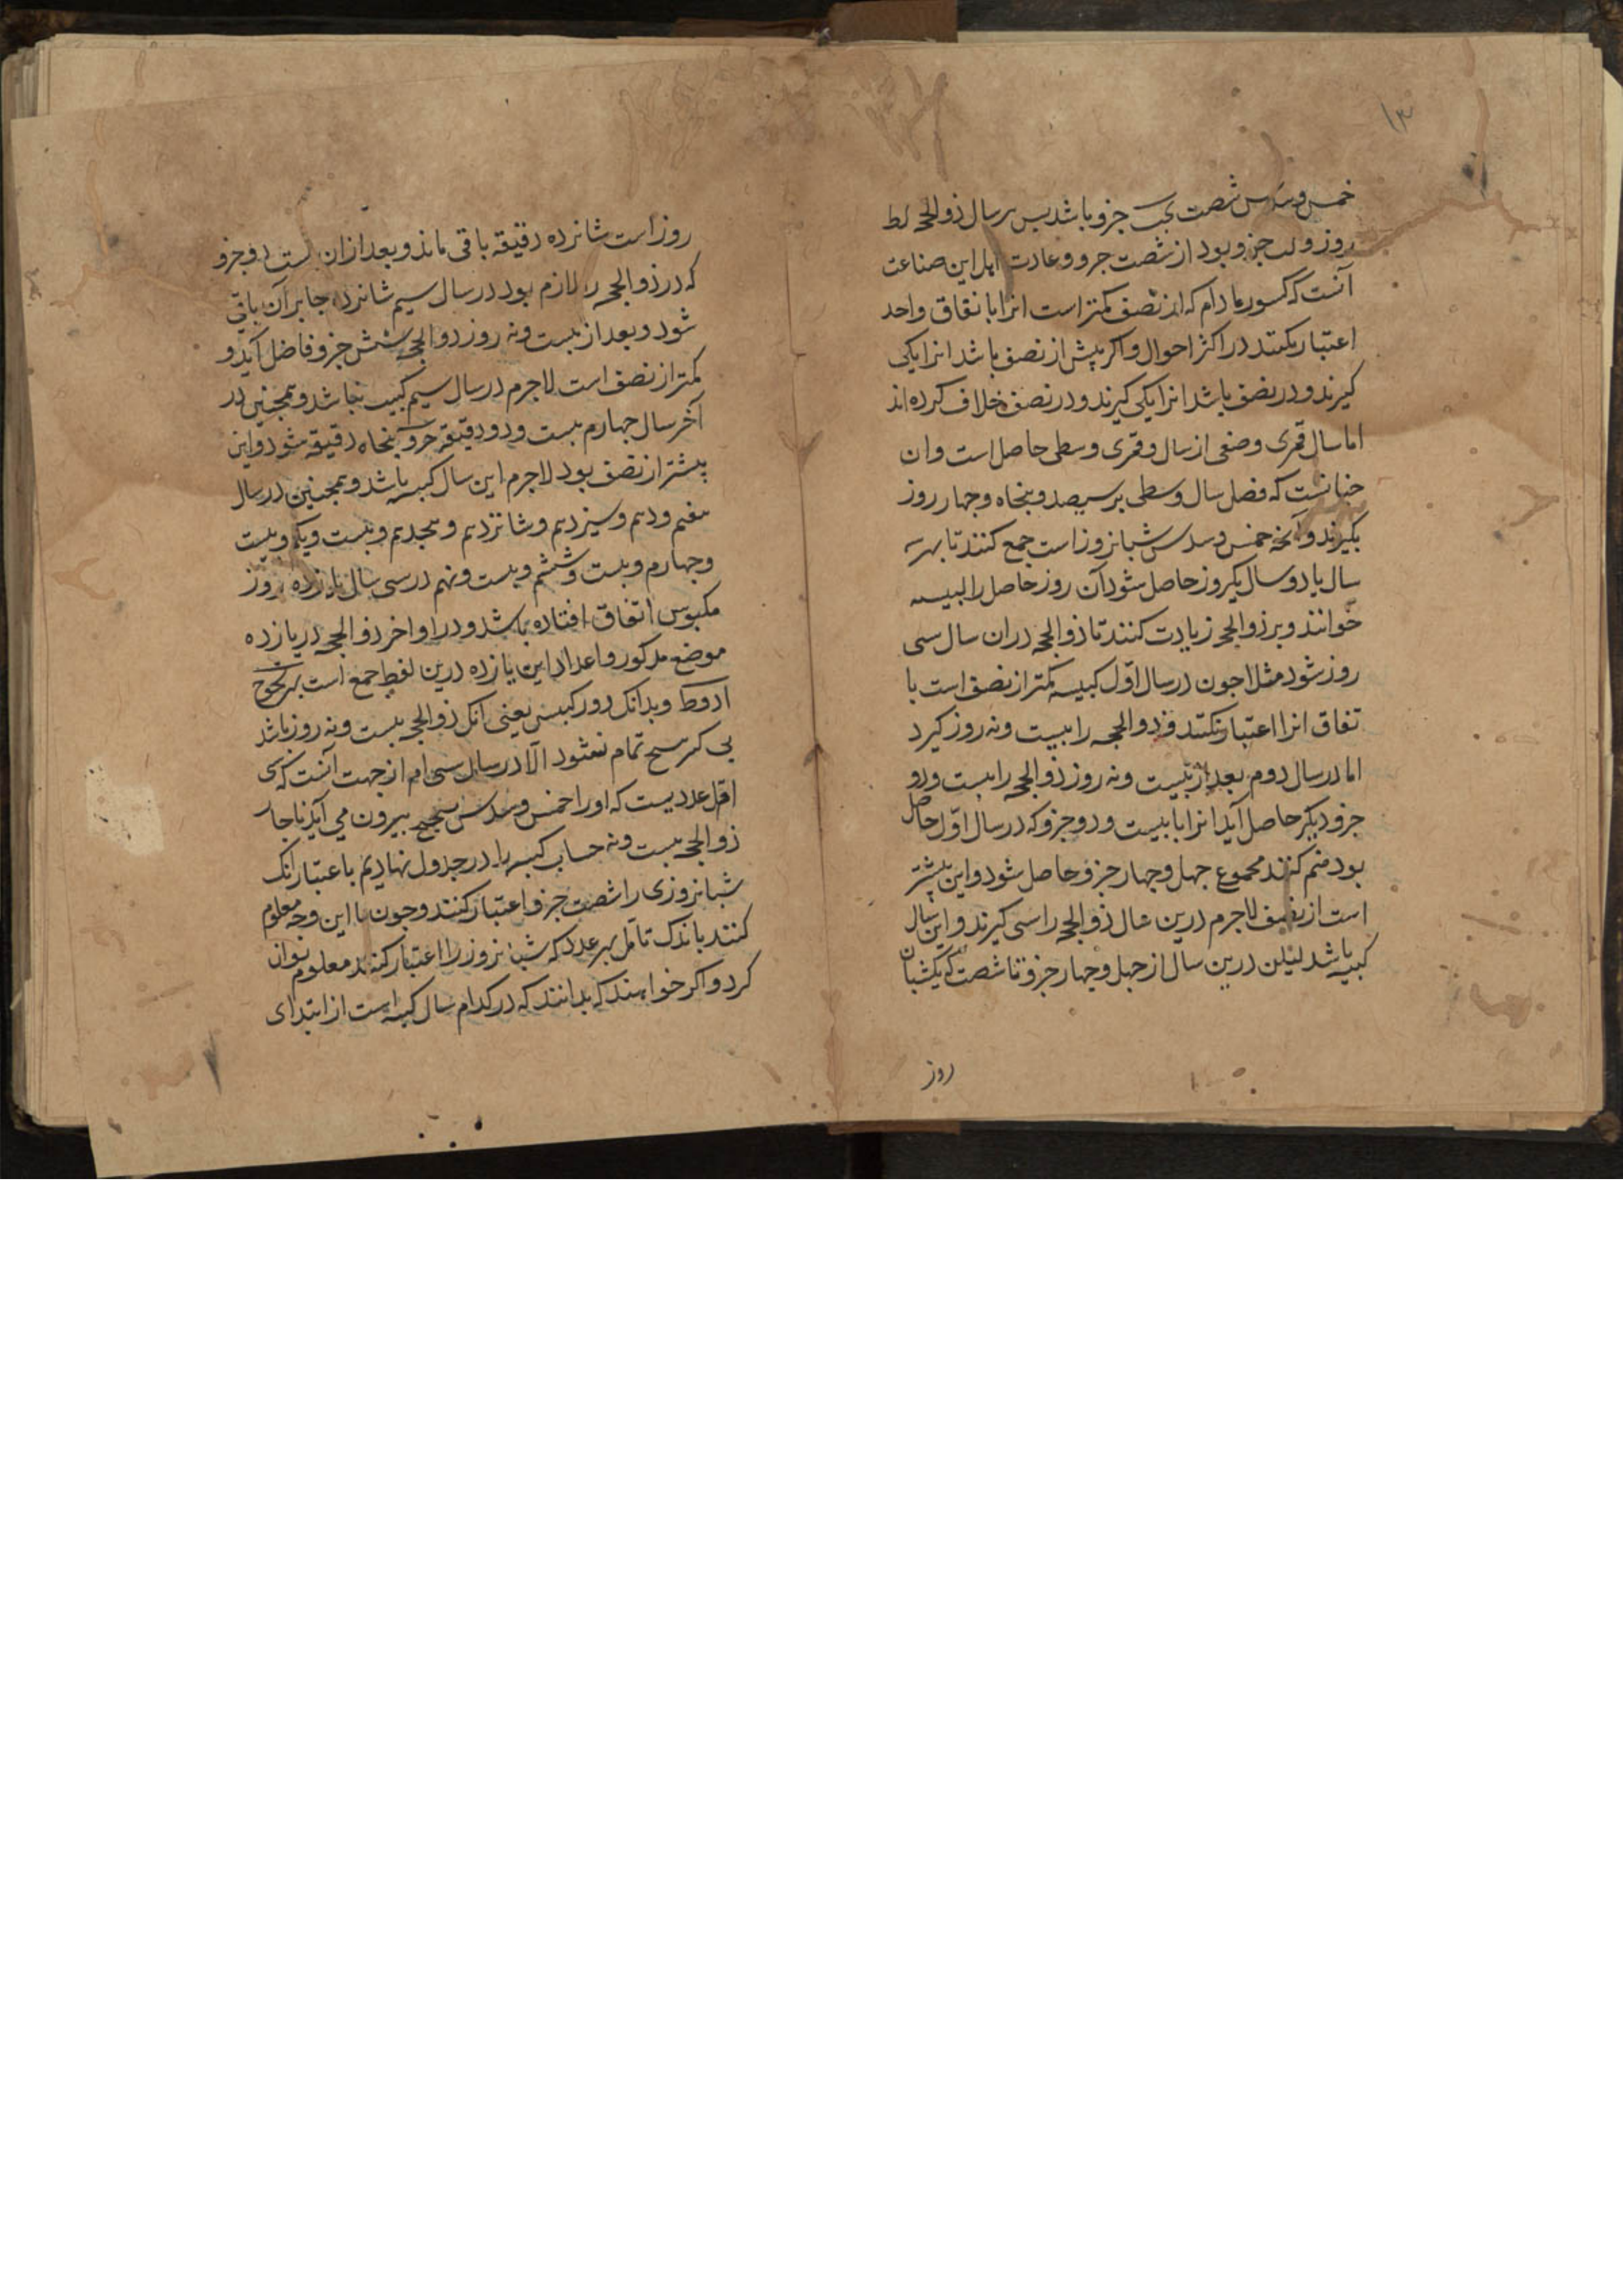 ۱۳
خمس و سدس شصت کب جزو باشد پس هر سال ذوالحجه لط
روز و لب جزو بود از شصت جزو و عادت اهل این صناعت
آنست که کسور مادام که از نصف کمتر است انرا باتفاق واحد
اعتبار نکنند در اکثر احوال و اکر بیش از نصف باشد انرا یکی
کیرند و در نصف باشد انرا یکی کیرند و در نصف خلاف کرده اند
اما سال قمری وضعی از سال و قمری وسطی حاصل است و ان
جنانست که فصل سال وسطی بر سیصد و بنجاه و جهار روز
بکیرند و آنجه خمس و سدس شبانروز است جمع کنند تا بهر سه
سال یا دو سال یکروز حاصل شود آن روز حاصل را کبیسه
خوانند و بر ذوالحجه زیادت کنند تا ذوالحجه دران سال سی
روز شود مثلا جون در سال اول کبیسه کمتر از نصف است با
تفاق انرا اعتبار نکنند و ذوالحجه را بیست و نه روز کیرد
اما در سال دوم بعد از بیست و نه روز ذوالحجه را بیست و دو
جزو دیکر حاصل آید انرا با بیست و دو جزو که در سال اول حاصل
بود ضم کنند مجموع جهل و جهار جزو حاصل شود و این بیشتر
است از نصف لاجرم درین سال ذوالحجه را سی کیرند و این سال
کبیسه باشد لیکن درین سال از جهل و جهار جزو تا شصت که یکشبان
روز
روز است شانزده دقیقه باقی ماند و بعد ازان بیست و دو جزو
که در ذوالحجه را لازم بود در سال سیم شانزده جابر آن باقی
شود و بعد از بیست و نه روز ذوالحجه شش جزو فاضل آید و
کمتر از نصف است لاجرم در سال سیم کبیسه نباشد و همجنین در
آخر سال جهارم بیست و دو دقیقه جزو بنجاه دقیقه شود و این
بیشتر از نصف بود لاجرم این سال کبیسه باشد و همجنین در سال
هفتم و دهم و سیزدهم و شانزدهم و هجدهم و بیست و یکم و بیست
و جهارم و بیست و ششم و بیست و نهم در سی سال یازده روز
مکبوس اتفاق افتاده باشد و در اواخر ذوالحجه در یازده
موضع مذکور و اعداد این یازده درین لفظ جمع است بهزیجوح
ادوط و بدانک دور کبیسی یعنی آنک ذوالحجه بیست و نه روز باشد
بی کسر صحیح تمام نشود الا در سال سی ام از جهت آنست که سی
اقل عددیست که او را خمس و سدس صحیح بیرون می آید ناجار
ذوالحجه بیست و نه حساب کبیسه را در جدول نهادیم باعتبار آنک
شبانروزی را شصت جزو اعتبار کنند و جون با این وجه معلوم
کنند باندک تامل بهر عدد که شبانروز را اعتبار کنند معلوم توان
کرد و اکر خواهند که بدانند که در کدام سال کبیسه است از ابتدای